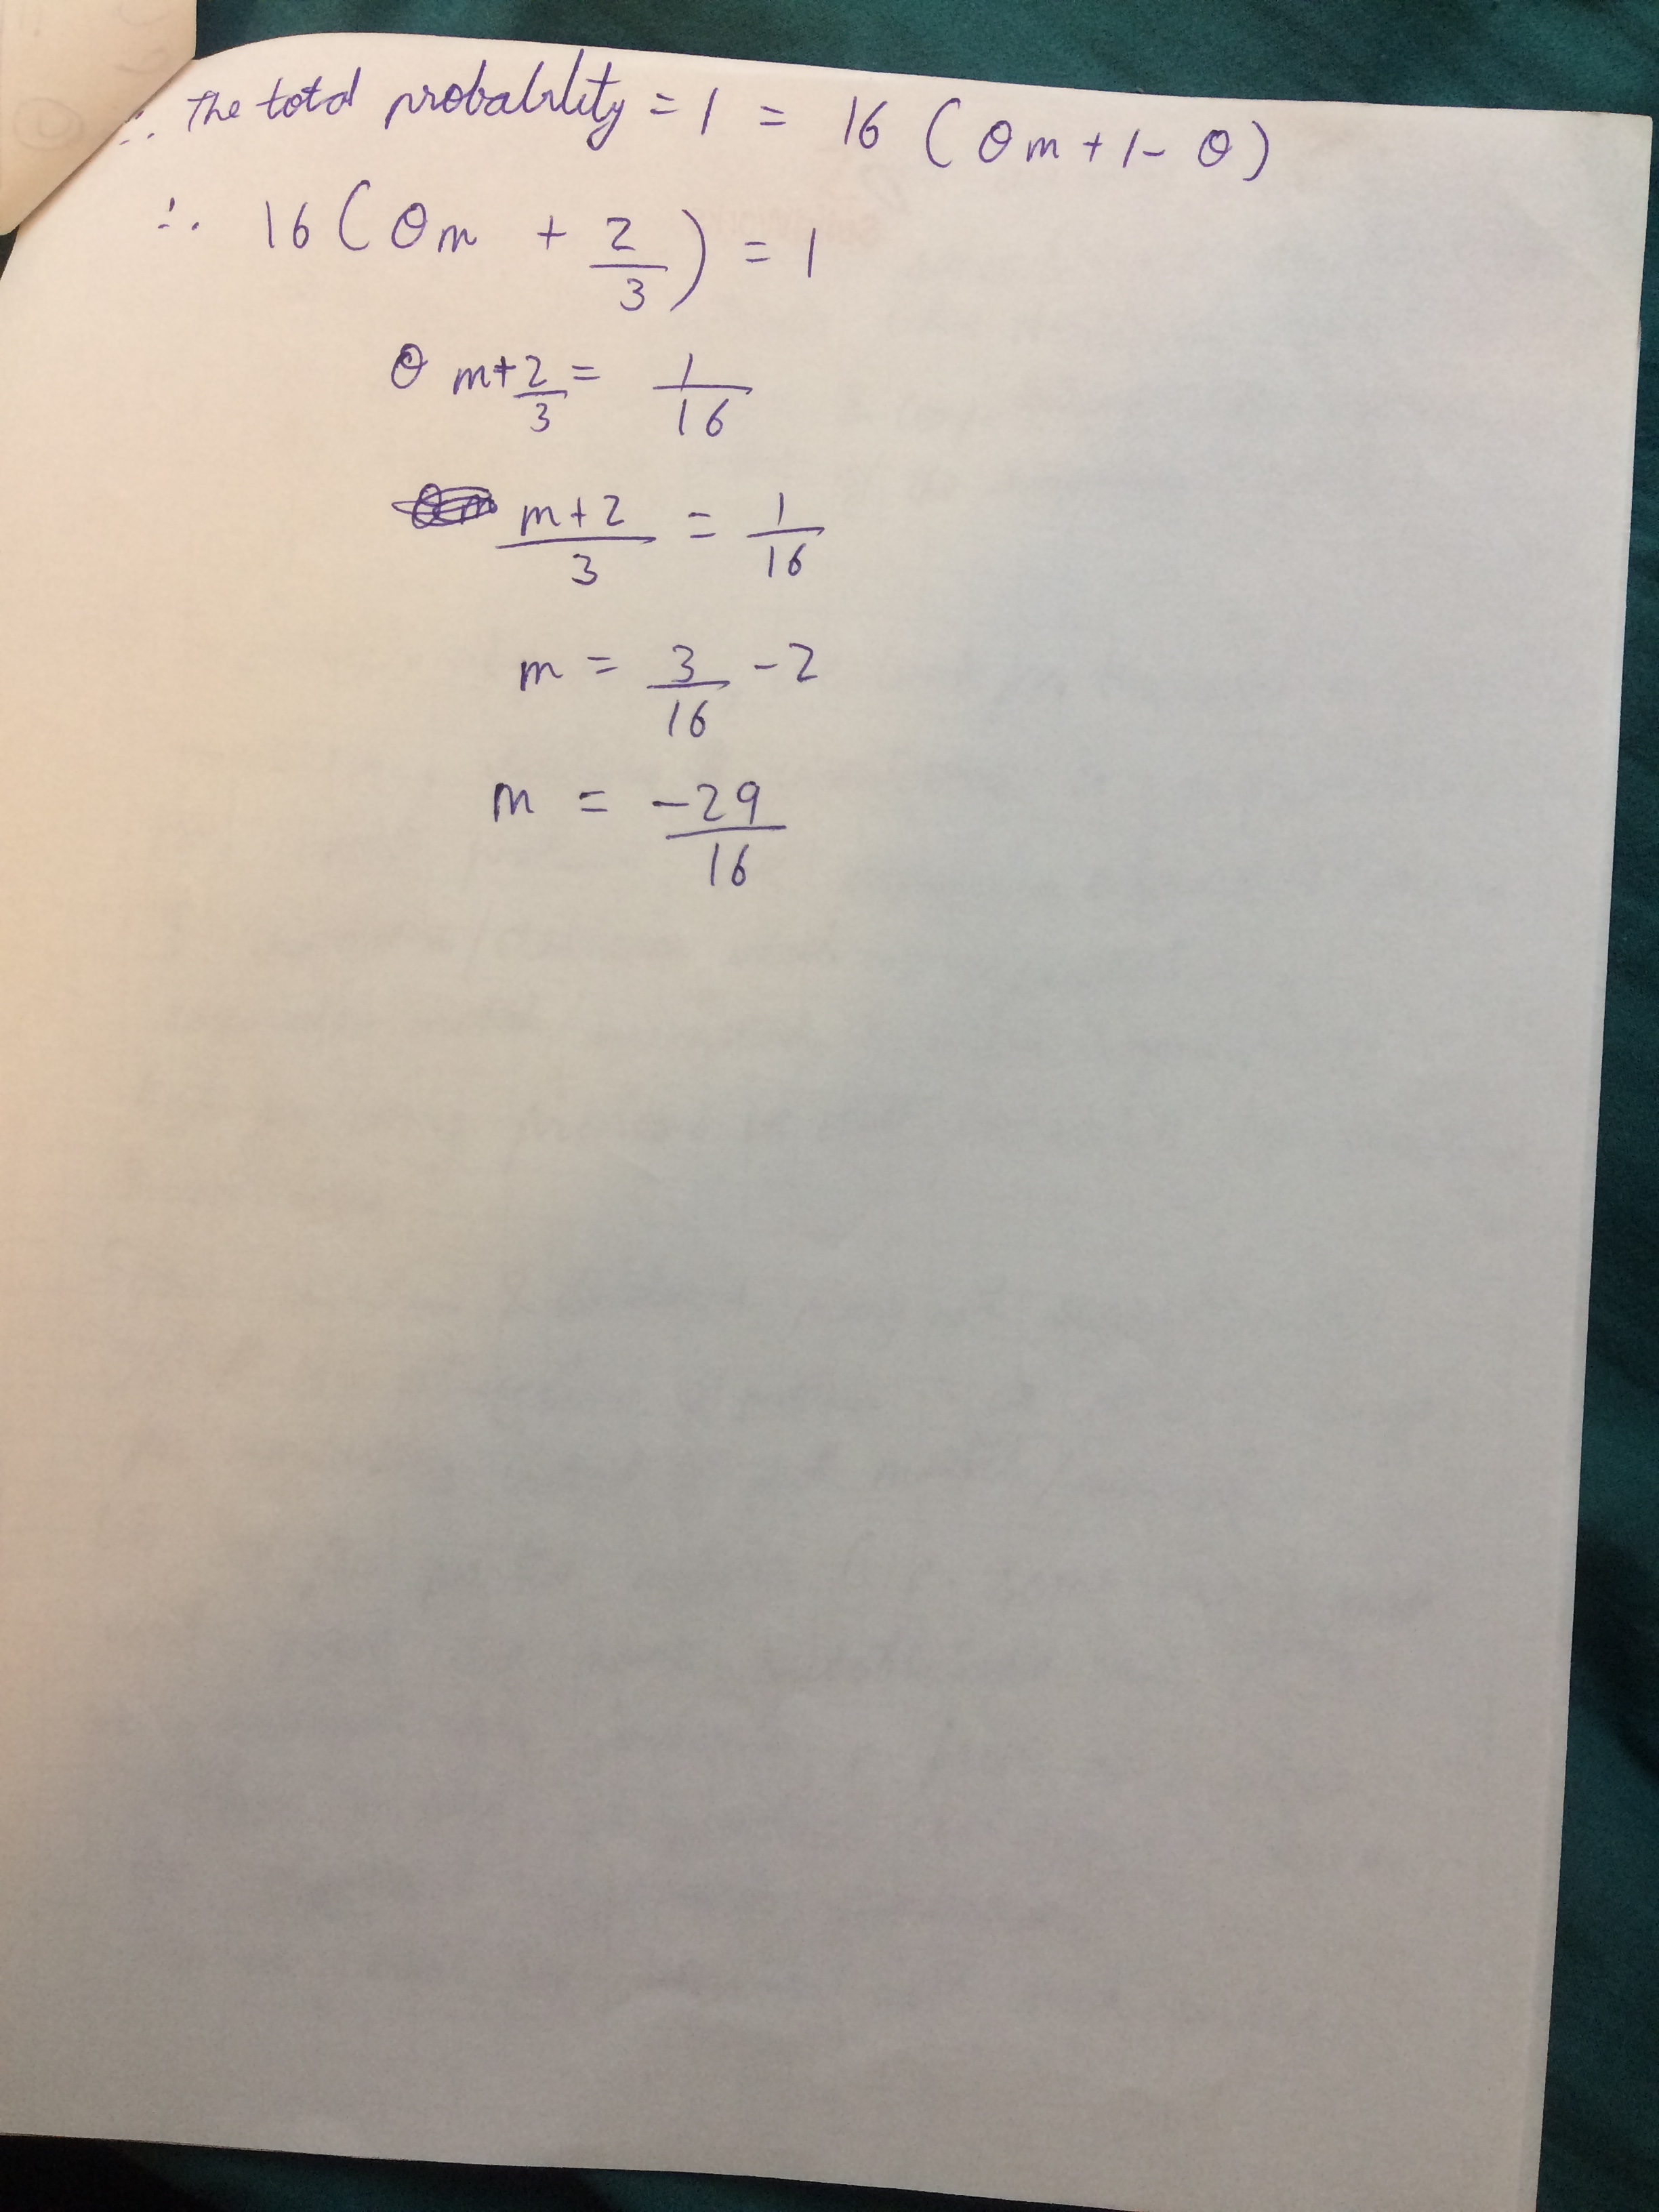 ∴ The total probability = 1 = 16 (θm + 1 - θ)
∴ 16 (θm + 2/3) = 1
θ m + 2/3 = 1/16
m + 2/3 = 1/16
m = 3/16 - 2
m = -29/16